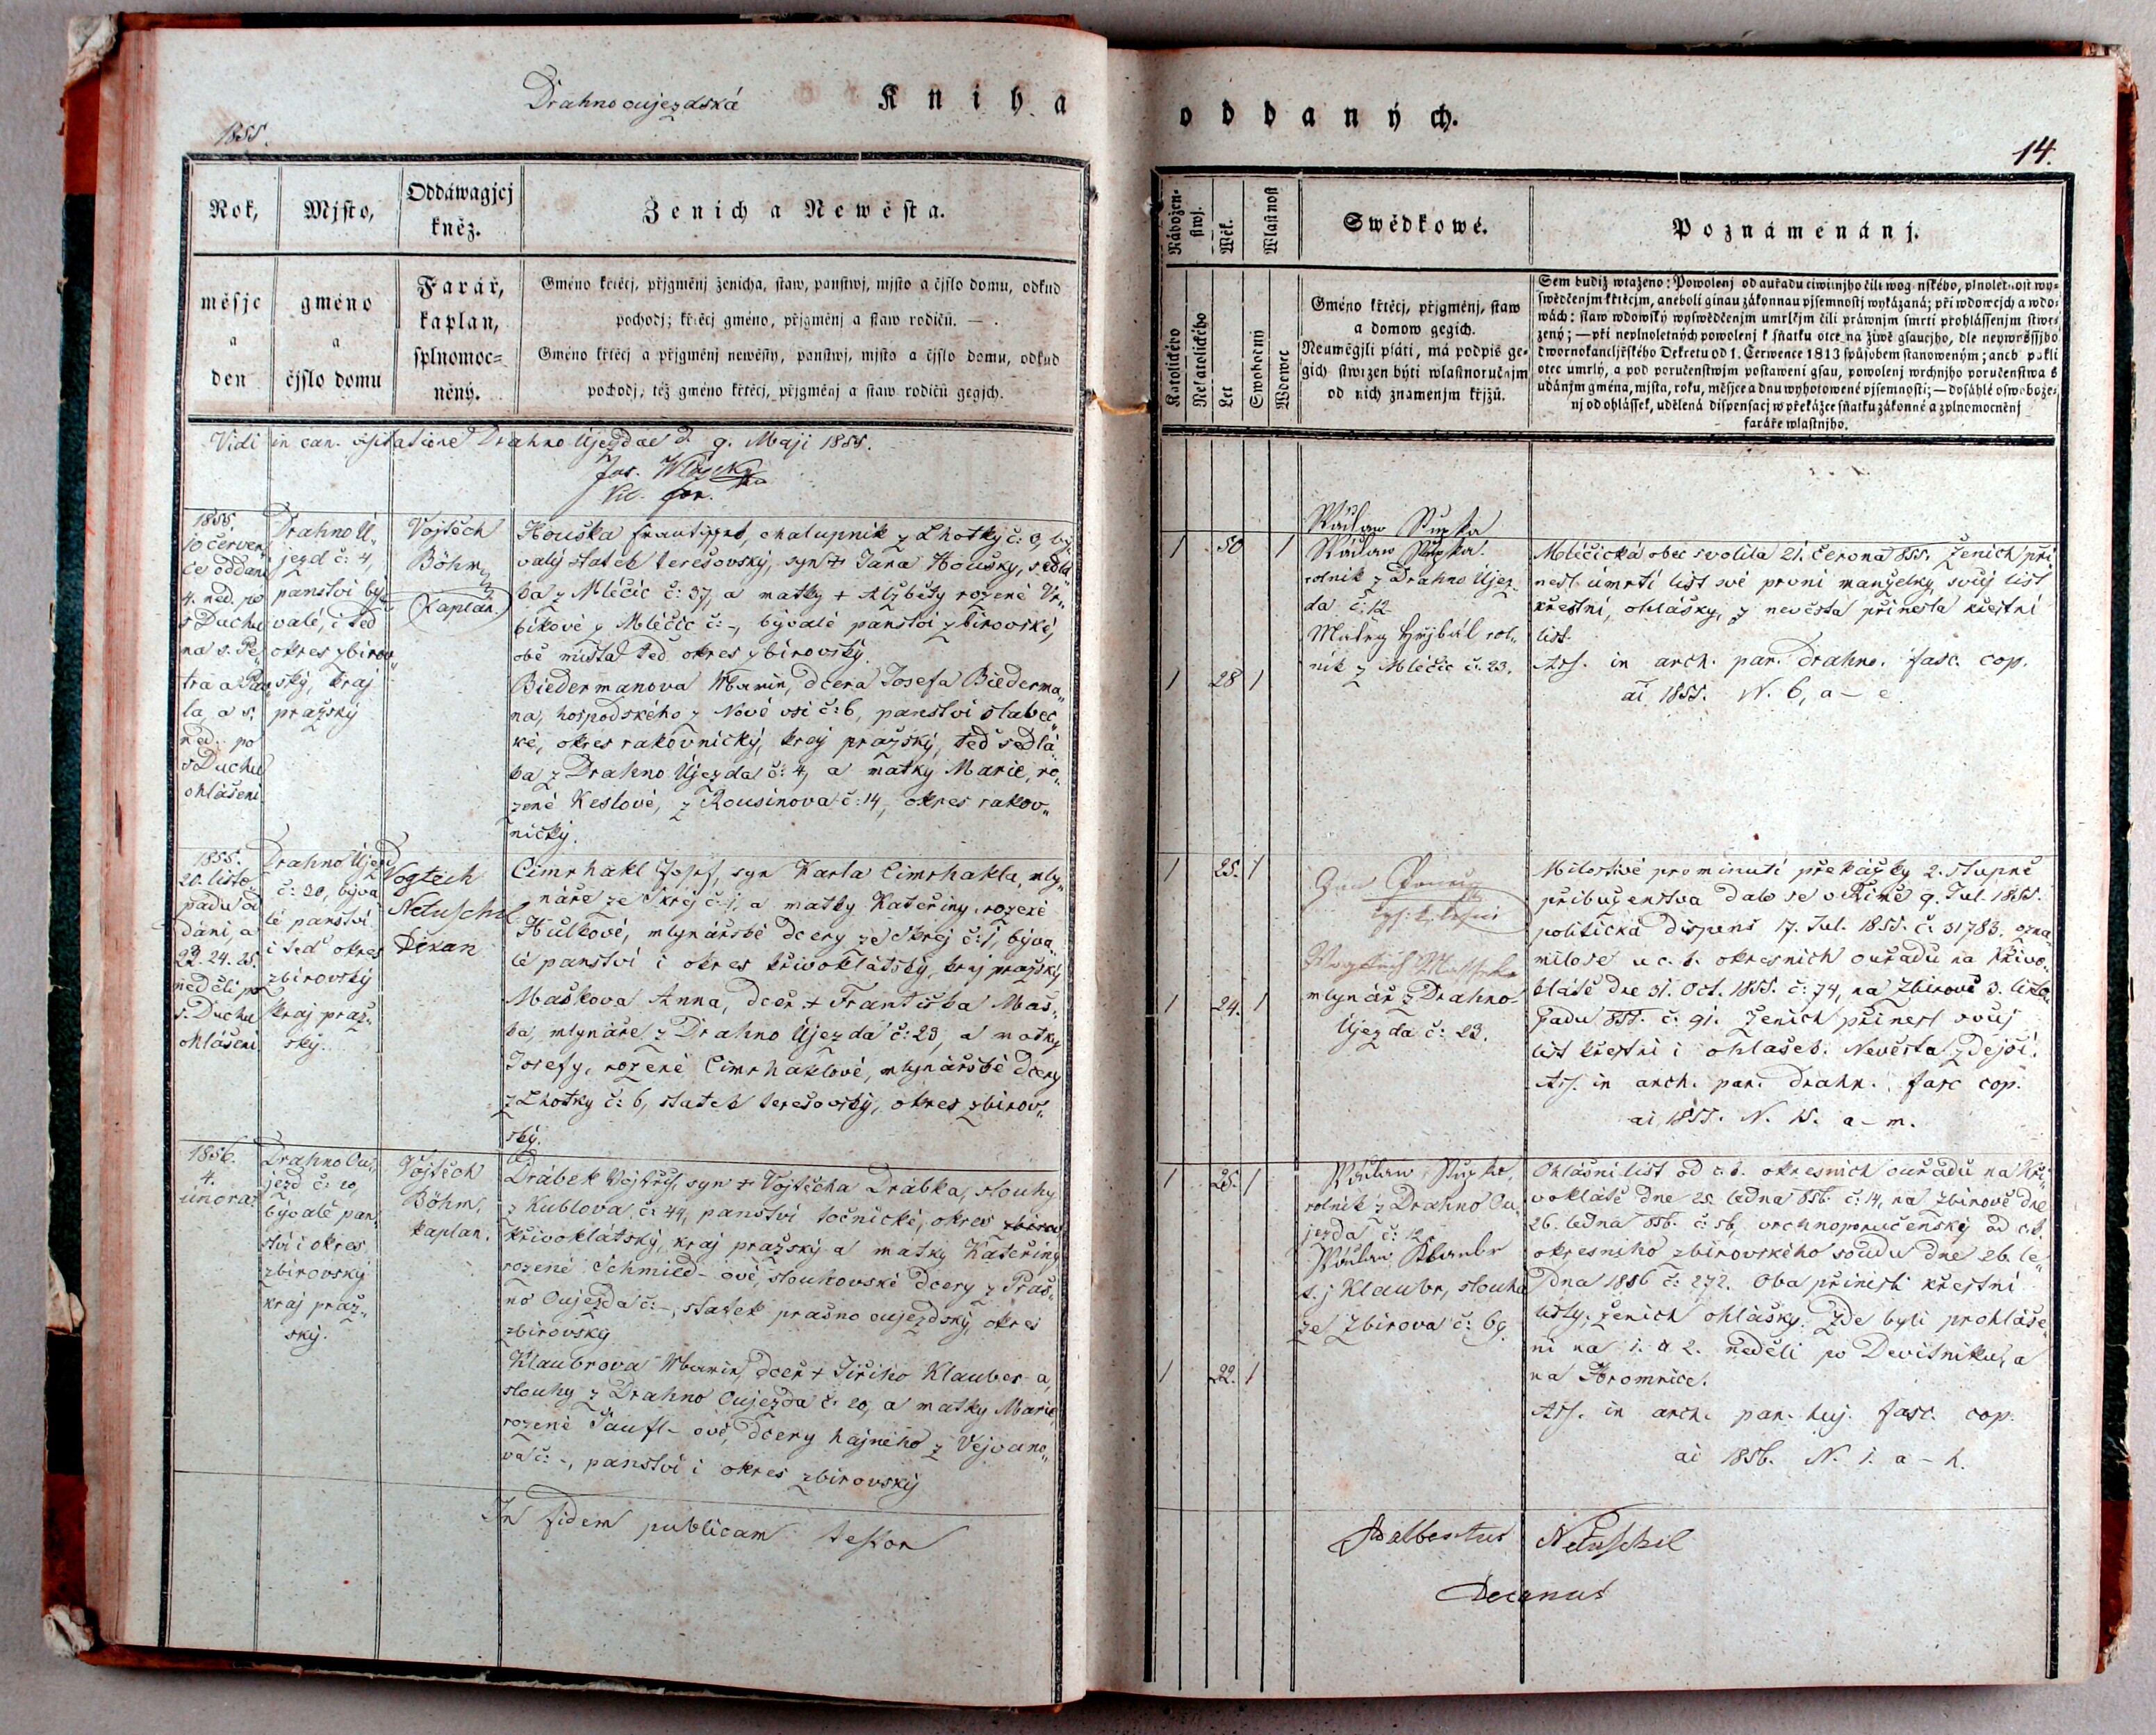 Drahno oujezdská Kniha
1855.
Rok,
Mjsto,
Oddáwagjcj
kněz.
Ženich a Newěsta.
měsjc
a
den
gméno
a
čjslo domu
Farář,
kaplan,
splnomoc=
něný.
Gméno křtěcj, přjgměnj ženicha, staw, panstwj, mjsto a čjslo domu, odkud
pochodj; křtěcj gméno, přjgměnj a staw rodičů. —
Gméno křtěcj a přjgměnj newěsty, panstwj, mjsto a čjslo domu, odkud
pochodj, též gméno křtěcj, přjgměnj a staw rodičů gegjch.
Vidi in can. visitatione Drahno Ujezdae d. 9. Maji 1855.
Jos.
Vic. for.
1855.
10 červen„
ce oddáni
4. ned. po
s Duchu
na s. Pe„
tra a Pav
la, a 5.
ned. po
s Duchu
ohlášeni
Drahno Ú„
jezd č: 4,
panství bý„
valé, i teď
okres zbirov„
ský, kraj
pražský
Vojtěch
Böhm,
Kaplan.
Houška František, chalupník z Lhotky č: 9, bý„
valý statek terešovský, syn + Jana Houšky, sedlá„
ka z Mlečic č: 37, a matky + Alžběty rozené Vr„
bikové z Mlečic č: -, bývalé panství zbirovské,
obě místa teď okres zbirovský.
Biedermanova Marie, dcera Josefa Biederma„
na, hospodského z Nové vsi č: 6, panství slabec„
ké, okres rakovnický, kraj pražský, teď sedlá„
ka z Drahno Újezda č: 4, a matky Marie, ro„
zené Keslové, z Rousinova č: 14, okres rakov„
nický.
1855.
20. listo„
padu od
dáni, a
23. 24. 25.
neděli po
s. Duchu
ohlášeni
Drahno Újezd
č: 30, býva
lé panství
i teď okres
zbirovský
kraj praž„
ský.
Vogtěch
Netuschil
Děkan
Cimrhakl Josef, syn Karla Cimrhakla, mly„
náře ze Skrej č: 1, a matky Kateřiny rozené
Hůlkové, mlynářské dcery ze Skrej č: 1, býva„
lé panství i okres křivoklátský, kraj pražský
Maškova Anna, dcer. + Františka Maš„
ka, mlynáře z Drahno Újezda č: 23, a matky
Josefy, rozené Cimrhaklové, mlynářské dcery
z Lhotky č: 6, statek terešovský, okres zbirov„
ský.
1856.
4.
února.
Drahno Ou„
jezd č: 20,
bývalé pan„
ství i okres
zbirovský
kraj praž„
ský.
Vojtěch
Böhm,
kaplan.
Drábek Vojtěch, syn + Vojtěcha Drábka, slouhy
z Kublova č: 44, panství točnické, okres
křivoklátský, kraj pražský a matky Kateřiny
rozené Schmied-ové, slouhovské dcery z Praš„
no Oujezda č: -, statek prašno oujezdský, okres
zbirovský
Klaubrova Marie, dcer + Jiřího Klauber-a,
slouhy z Drahno Oujezda č: 20, a matky Marie
rozené Taufl-ové, dcery hajného z Vejvano„
va č: -, panství i okres zbirovský
In fidem publicam testor
oddaných.
14.
Nábožen-
stwj.
Wěk.
Wlastnost
Swědkowé.
Poznámenánj.
Katolického
Nekatolického
Let
Swobodný
Wdowec
Gméno křtěcj, přjgměnj, staw
a domow gegich.
Neuměgjli psáti, má podpis ge-
gich stwrzen býti wlastnoručnjm
od nich znamenjm křjžů.
Sem budiž wtaženo: Powolenj od auřadu ciwilnjho čili wogenského, plnoletnost wy-
swědčenjm křtěcjm, aneboli ginau zákonnau pjsemnostj wykázaná; při wdowcjch a wdo-
wách: staw wdowský wyswědčenjm umrlčjm čili práwnjm smrti prohlássenjm stwr-
zený; — při neplnoletných powolenj k sňatku otce na žiwě gsaucjho, dle neywyššjho
dwornokancljéského Dekretu od 1. Čerwence 1813 způsobem stanoweným; aneb pakli
otec umrlý, a pod poručenstwjm postaweni gsau, powolenj wrchnjho poručenstwa s
udánjm gména, mjsta, roku, měsjce a dnu wyhotowené pjsemnosti; — dosáhlé oswoboze-
nj od ohlássek, udělená dispensacj w překážce sňatku zákonné a zplnomocněnj
faráře wlastnjho.
Wáclaw Supka
1 50 1
Wáclaw Supka.
rolník z Drahno Újez„
da č: 12
Matěg Hýbál rol„
ník z Mlečic č. 23.
1 28 1
Mlečická obec svolila 21. června 855. Ženich při„
nesl úmrtí list své první manželky, svůj list
křestní, ohlášky, z nevěsta přinesla křestní
list.
Ass. in arch. par. Drahno. fasc. cop.
ai 1855. N. 6, a – e
1 25. 1
1 24. 1
mlynář z Drahno-
Újezda č: 23.
Milostivé prominutí překážky 2. stupně
přibuzenstva dalo se v Římě 9. Jul. 1855.
politická dispens 17. Jul. 1855. č. 31783. ozná„
milose u c. k. okresních ouřadů na Křivo„
klátě dne 31. Oct. 1855. č: 74, na Zbirově 3. listo„
padu 855. č. 91. Ženich přinesl svůj
list křestní i ohlášek. Nevěsta zdejší.
Ass. in arch. par. Drahn. fasc cop.
ai 1855. N. 15. a – m.
1 25. 1
Wáclaw Supka,
rolník z Drahno Ou„
jezda č: 12
Wáclaw Klaubr
t. j Klaubr, slouha
ze Zbirova č: 69.
1 22. 1
Ohlášní list od c. k. okresních ouřadů na Kři„
voklátě dne 25. ledna 856. č: 14, na Zbirově dne
26. ledna 856. č: 56, vrchnoporučenský od c. k.
okresního zbirovského soudu dne 26. le„
dna 1856 č: 272. Oba přinesli křestní
listy, ženich ohlášky. Zde byli prohláše„
ni na 1. a 2. neděli po Devítníku, a
na Hromnice.
Ass. in arch. par. huj. fasc. cop.
ai 1856. N. 1. a – h.
Adalbertus Netuschil
Decanus